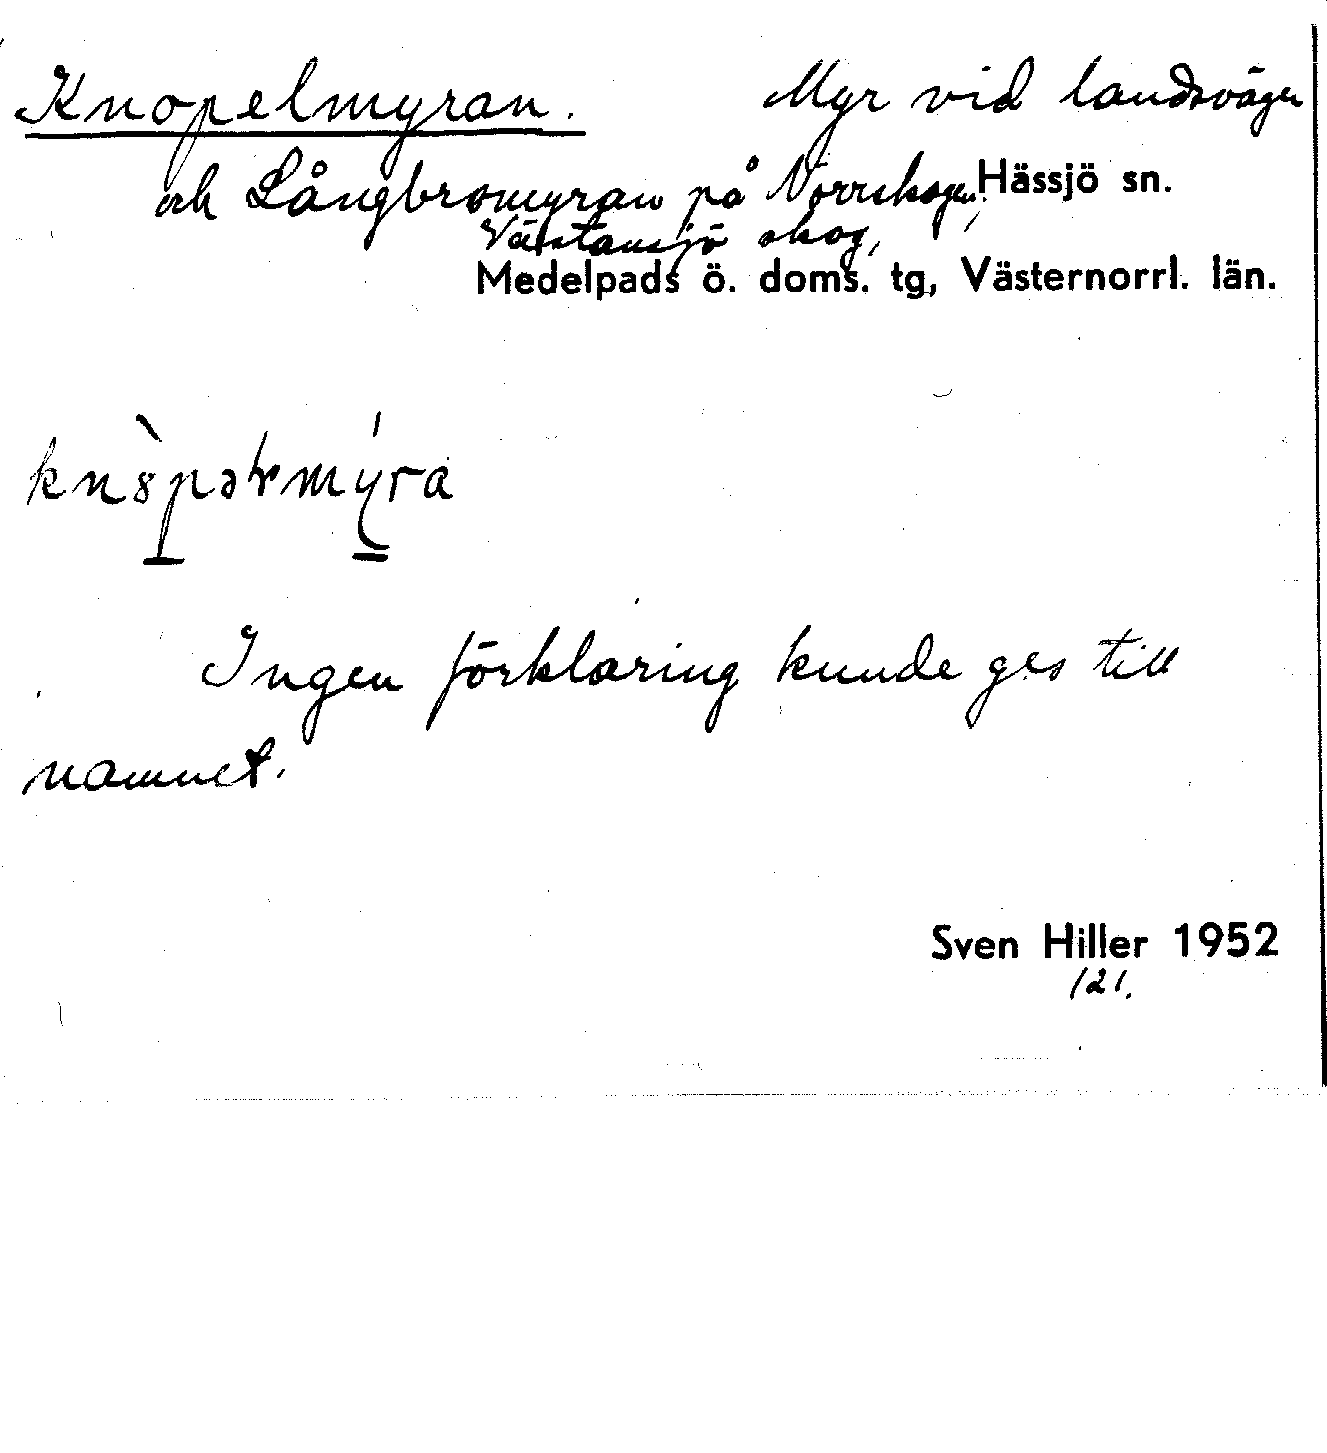 Knopelmyran. Myr vid landsvägen
och Långbromyran på Norrskogen, Hässjö sn.
Västansjö skog,
Medelpads ö. doms. tg, Västernorrl. län.
Ingen förklaring kunde ges till
namnet.
Sven Hiller 1952
121.